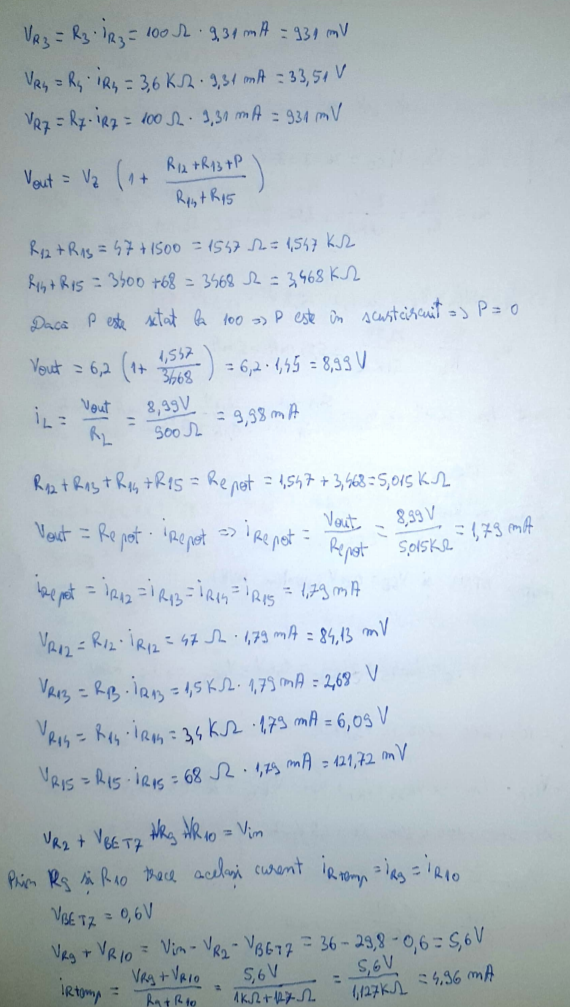 V_R3 = R3 · i_R3 = 100 Ω · 9,31 mA = 931 mV
V_R4 = R4 · i_R4 = 3,6 KΩ · 9,31 mA = 33,51 V
V_R7 = R7 · i_R7 = 100 Ω · 9,31 mA = 931 mV
Vout = Vz (1 + (R12 + R13 + P) / (R14 + R15))
R12 + R13 = 47 + 1500 = 1547 Ω = 1,547 KΩ
R14 + R15 = 3400 + 68 = 3468 Ω = 3,468 KΩ
Dacă P este setat la 100 => P este în scurtcircuit => P = 0
Vout = 6,2 (1 + 1,547 / 3468) = 6,2 · 1,45 = 8,99 V
i_L = Vout / R_L = 8,99V / 900 Ω = 9,98 mA
R12 + R13 + R14 + R15 = Repot = 1,547 + 3,468 = 5,015 KΩ
Vout = Repot · i_Repot => i_Repot = Vout / Repot = 8,99 V / 5,015KΩ = 1,79 mA
i_Repot = i_R12 = i_R13 = i_R14 = i_R15 = 1,79 mA
V_R12 = R12 · i_R12 = 47 Ω · 1,79 mA = 84,13 mV
V_R13 = R13 · i_R13 = 1,5 KΩ · 1,79 mA = 2,68 V
V_R14 = R14 · i_R14 = 3,4 KΩ · 1,79 mA = 6,09 V
V_R15 = R15 · i_R15 = 68 Ω · 1,79 mA = 121,72 mV
V_R2 + V_BET7 + V_R9 + V_R10 = Vin
Prin R9 și R10 trece același curent i_Rtemp = i_R9 = i_R10
V_BET7 = 0,6V
V_R9 + V_R10 = Vin - V_R2 - V_BET7 = 36 - 29,8 - 0,6 = 5,6 V
i_Rtemp = (V_R9 + V_R10) / (R9 + R10) = 5,6 V / (1KΩ + 127Ω) = 5,6 V / 1,127KΩ = 4,96 mA